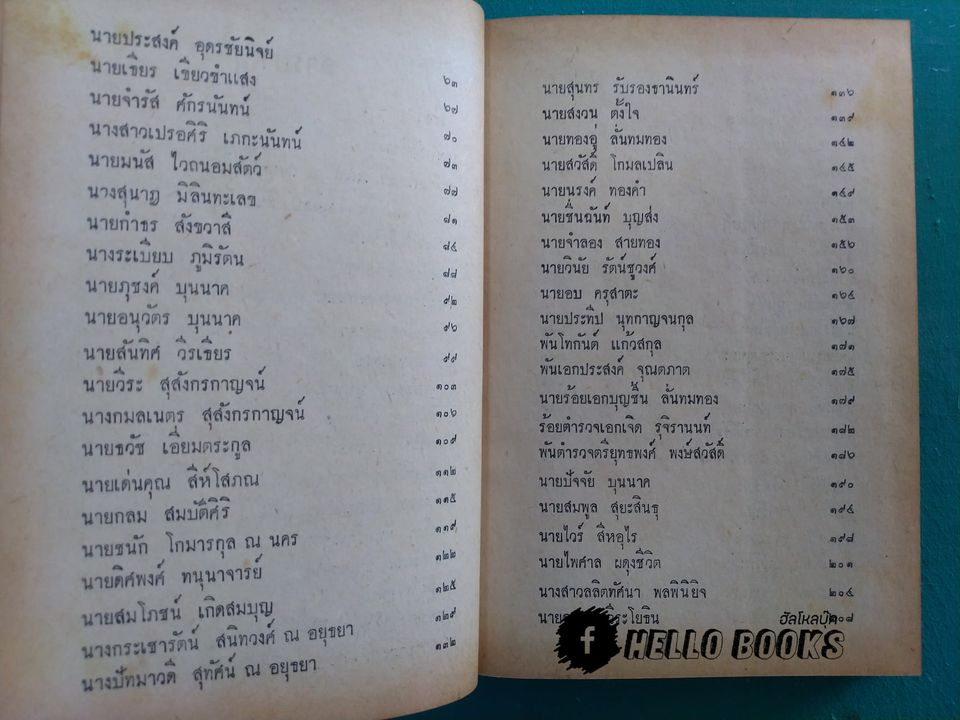 นายประสงค์ อุดรชัยนิจย์ ๖๓
นายเขียร เขียวขำแสง ๖๗
นายจำรัส ศักรนันทน์ ๗๐
นางสาวเปรอศิริ เภกะนันทน์ ๗๓
นายมนัส ไวถนอมสัตว์ ๗๗
นางสุนาฎ มิลินทะเลข ๘๑
นายกำธร สังขวาสี ๘๔
นางระเบียบ ภูมิรัตน ๘๘
นายภุชงค์ บุนนาค ๙๒
นายอนุวัตร บุนนาค ๙๖
นายสันทิศ วีรเธียร ๙๙
นายวีระ สุสังกรกาญจน์ ๑๐๓
นางกมลเนตร สุสังกรกาญจน์ ๑๐๖
นายธวัช เอี่ยมตระกูล ๑๐๙
นายเด่นคุณ สีห์โสภณ ๑๑๒
นายกลม สมบัติศิริ ๑๑๕
นายชนัก โกมารกุล ณ นคร ๑๑๙
นายดิศพงศ์ ทนุนาจารย์ ๑๒๒
นายสมโภชน์ เกิดสมบุญ ๑๒๕
นางกระเชารัตน์ สนิทวงศ์ ณ อยุธยา ๑๒๙
นางปัทมาวดี สุทัศน์ ณ อยุธยา ๑๓๒
นายสุนทร รับรองธานินทร์ ๑๓๖
นายสงวน ตั้งใจ ๑๓๙
นายทองอู่ ลั่นทมทอง ๑๔๒
นายสวัสดิ์ โกมลเปลิน ๑๔๕
นายนรงค์ ทองคำ ๑๔๙
นายชื่นฉันท์ บุญส่ง ๑๕๓
นายจำลอง สายทอง ๑๕๖
นายวินัย รัตน์ชูวงศ์ ๑๖๐
นายอบ ครุสาตะ ๑๖๔
นายประทีป นุทกาญจนกุล ๑๖๗
พันโทกันต์ แก้วสกุล ๑๗๑
พันเอกประสงค์ จุณตภาต ๑๗๕
นายร้อยเอกบุญชื่น ลั่นทมทอง ๑๗๙
ร้อยตำรวจเอกเจิด รุจิรานนท์ ๑๘๒
พันตำรวจตรียุทธพงศ์ พงษ์สวัสดิ์ ๑๘๖
นายปัจจัย บุนนาค ๑๙๐
นายสมพูล สุยะสินธุ ๑๙๔
นายไวร์ สีหอุไร ๑๙๘
นายไพศาล ผดุงชีวิต ๒๐๑
นางสาวลลิตทัศนา พลพินิยิจ ๒๐๔
ฮัลโหลบุ๊ค
f HELLO BOOKS